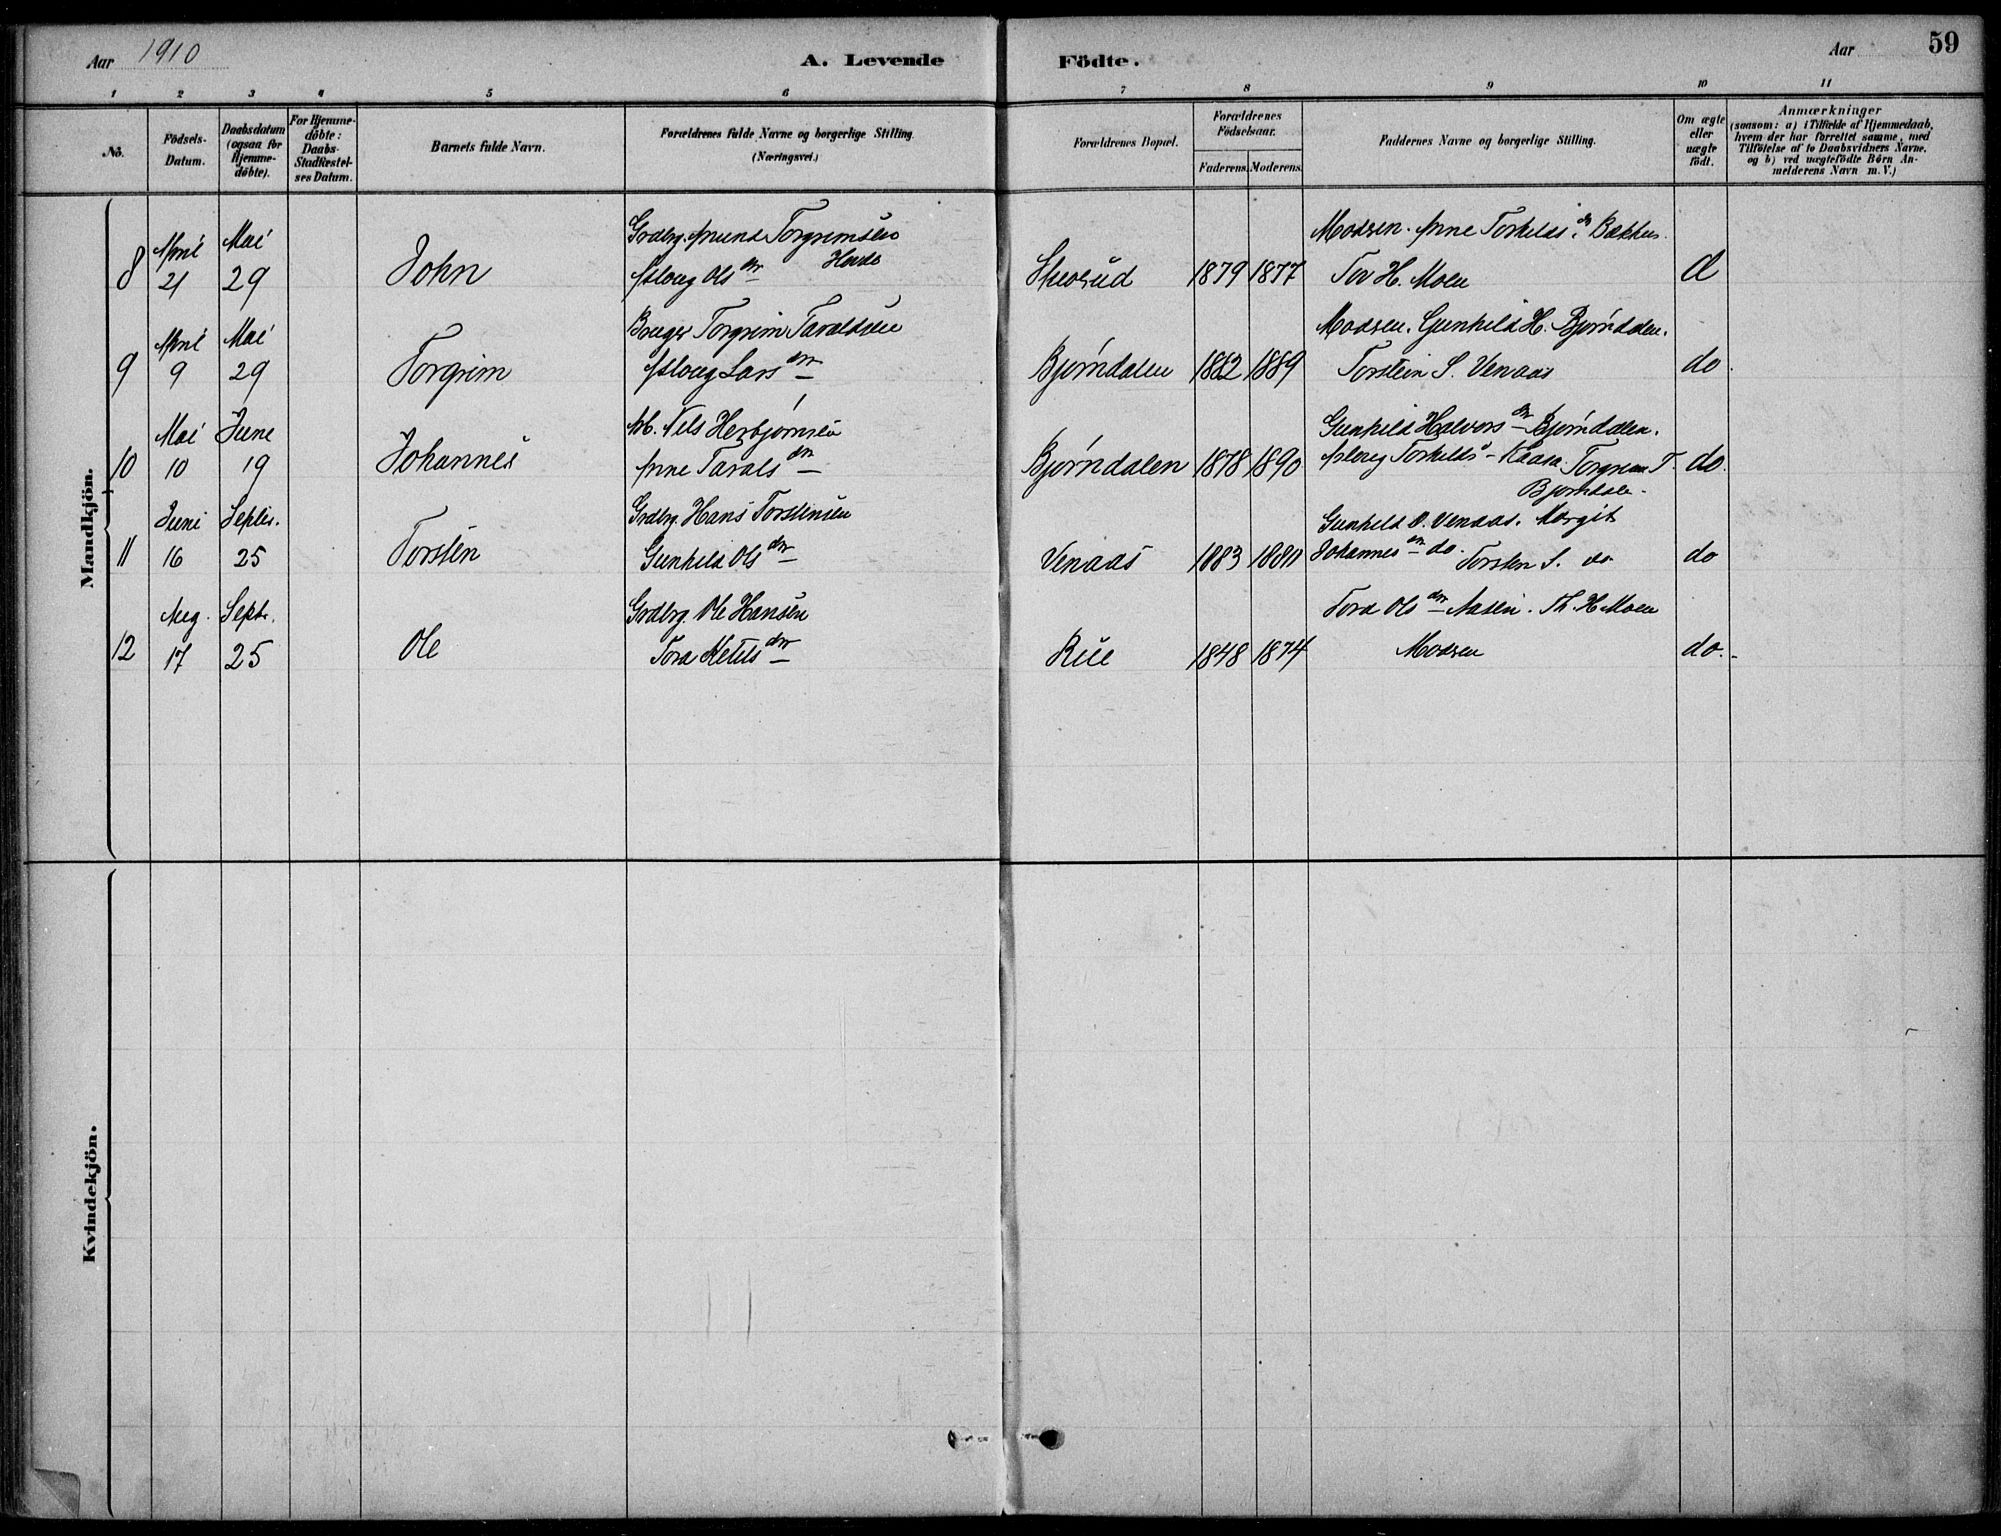 Aar 1910
A. Levende
Födte.
Aar
59
1 2 3 4 5 6 7 8 9 10 11
No.
Födsels-
Datum.
Daabsdatum
(ogsaa for
Hjemme-
döbte).
For Hjemme-
döbte:
Daabs-
Stadfæstel-
ses Datum.
Barnets fulde Navn.
Forældrenes fulde Navne og borgerlige Stilling.
(Næringsvei.)
Forældrenes Bopæl.
Forældrenes
Födselsaar.
Faderens. Moderens.
Faddernes Navne og borgerlige Stilling.
Om ægte
eller
uægte
födt.
Anmærkninger
(saasom: a) i Tilfælde af Hjemmedaab,
hvem der har forrettet samme, med
Tilföielse af to Daabsvidners Navne,
og b) ved uægtefödte Börn An-
melderens Navn m. V.)
Mandkjön.
8 April 21 Mai 29 John
Grdbg. Amund Torgrimsen
Aslaug Ols dtr
1879 1877
Modren. Anne Torkilds dr Bakken.
Tov H. Moen
9 April 9 Mai 29 Torgrim
Bruger Torgrim Taraldsen
Aslaug Lars dtr
Bjørndalen 1882 1889
Modren. Gunhild H. Bjørndalen.
Torstein S. Venaas
do.
10 Mai 10 Juni 19 Johannes
Arb. Nils Herbjørnsen
Anne Tarals dtr
Bjørndalen 1878 1890
Gunhild Halvors dtr Bjørndalen.
Aslaug Torkilds - Kaasa. Torgrim T.
Bjørndale.
do.
11 Juni 16 Septbr. 25 Torsten
Grdbg. Hans Torstensen
Gunhild Ols dtr
Venaas 1883 1880
Gunhild O. Venaas. Margit
Johannes dtr do. Torsten S. do.
do
12 Aug. 17 Septr. 25 Ole
Grdbg. Ole Hansen
Tora Ketils dtr
Rue 1848 1874
Tora Ols dtr Aasen. Th. H. Moen
Modren
do.
Kvindekjön.